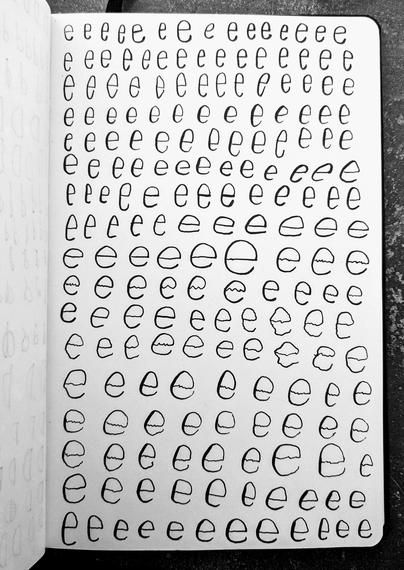 e e e e e e e e e e e e e e e
e e e e e e e e e e e e e e e
e e e e e e e e e e e e e e
e e e e e e e e e e e e e
e e e e e e e e e e e e e e
e e e e e e e e e e e e e
e e e e e e e e e e e e e e
e e e e e e e e e e e
e e e e e e e e e
e e e e e e e e e e
e e e e e e e e e e
e e e e e e e e e
e e e e e e e e e
e e e e e e e e e
e e e e e e e e e
e e e e e e e e e e
e e e e e e e e e e e e